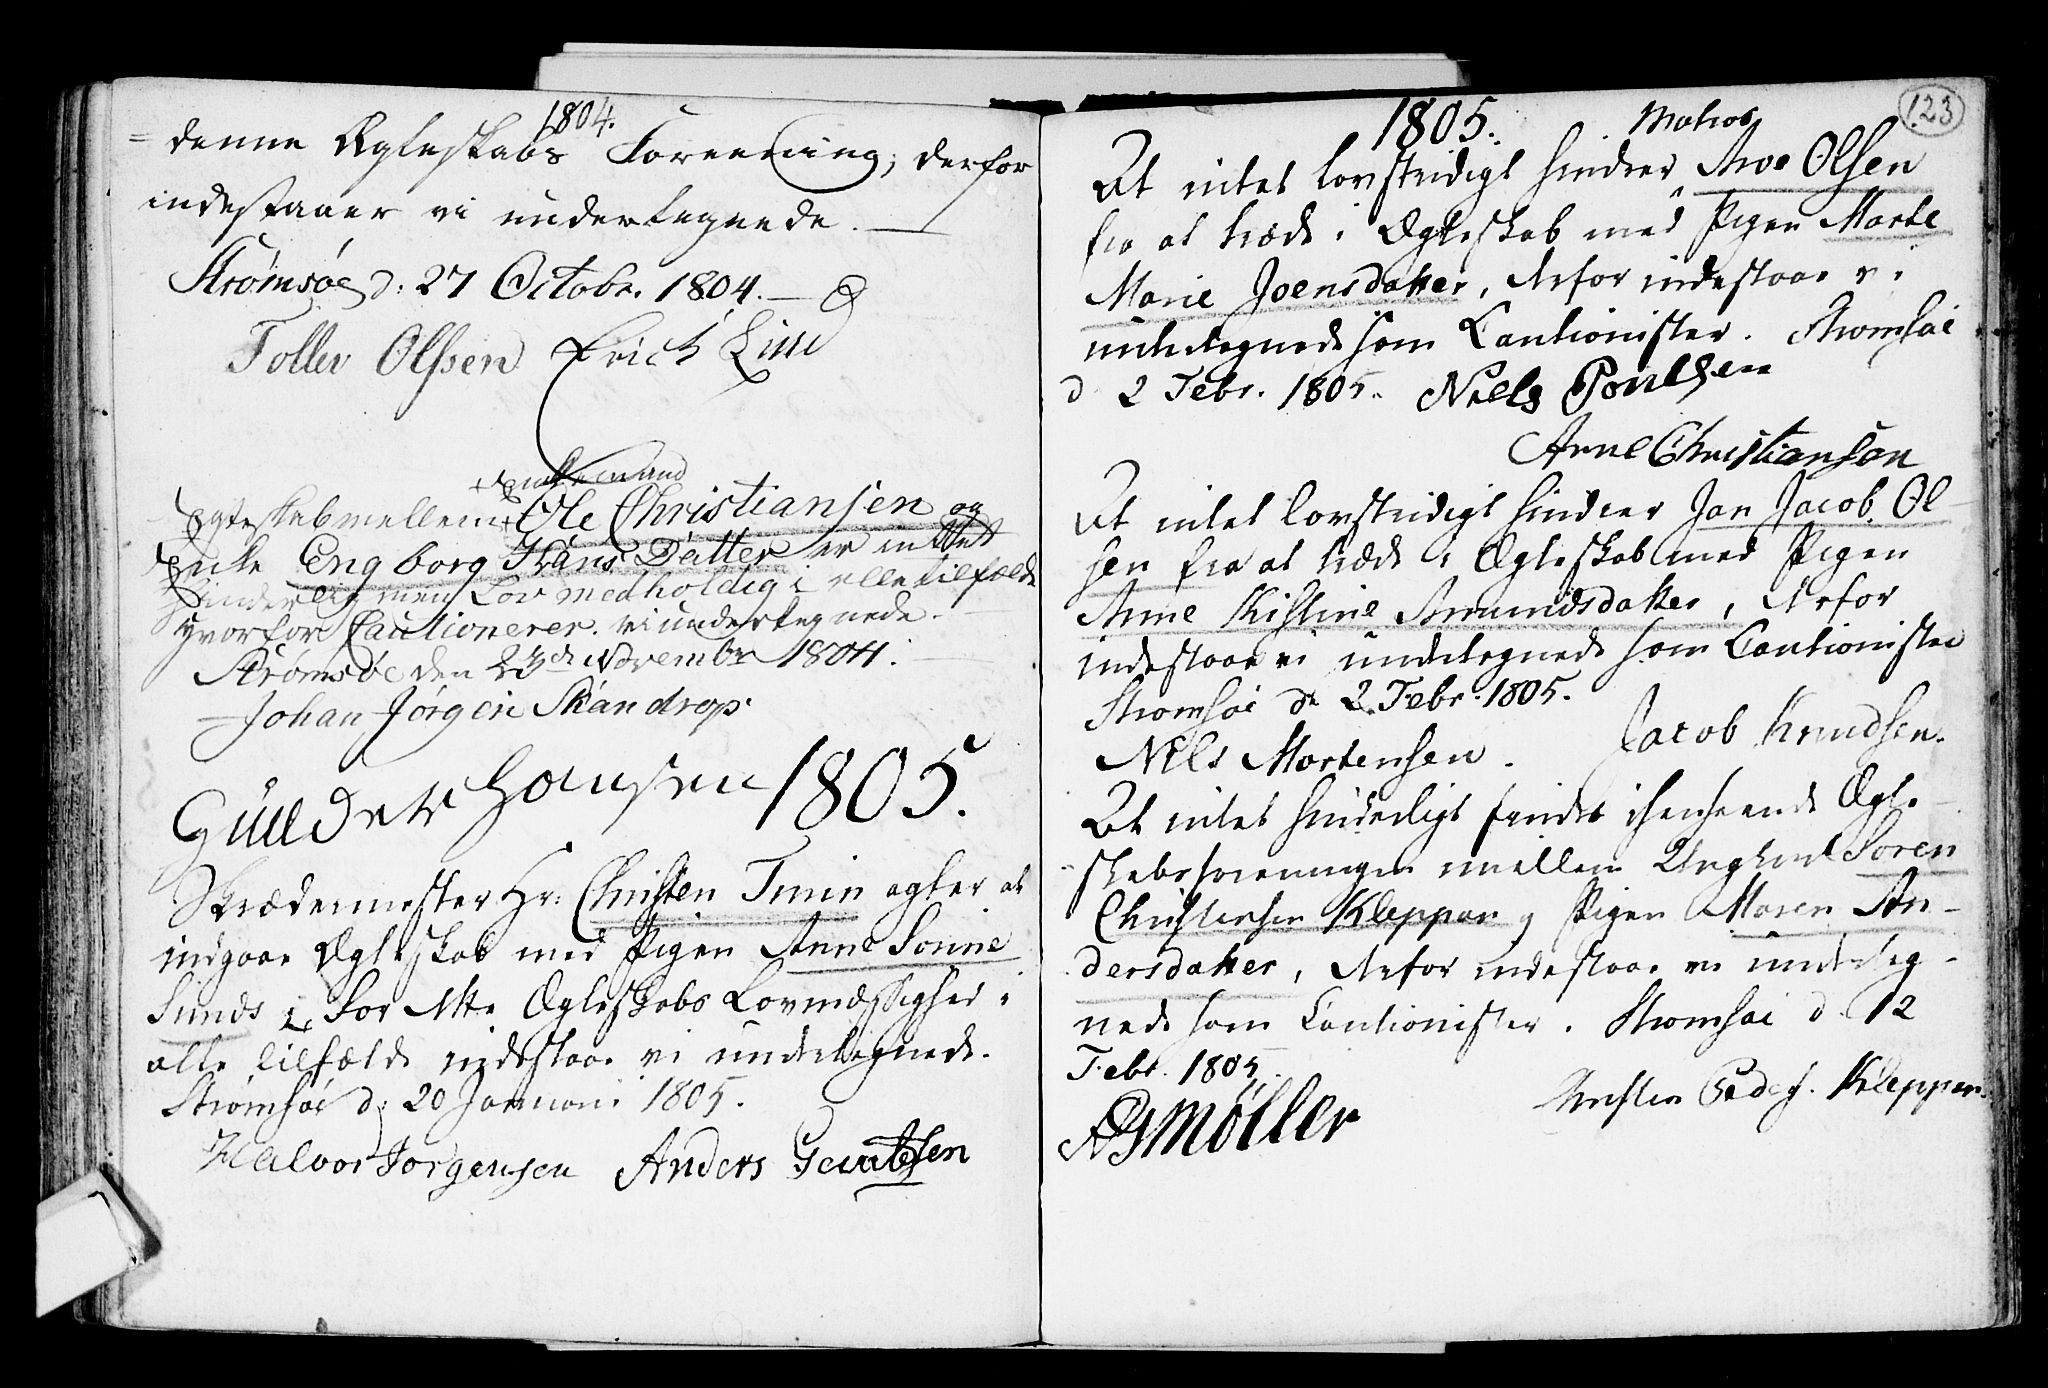 1804.
denne Ægteskabs Foreening, derfor
indestaaer vi undertegnede.
Strømsøe d: 27 Octobr. 1804.
Toller Olssen Erich Lind
Enkemand
Ægteskab mellem + Ole Christiansen og
Enke Engborg Hans Datter er intet
hinderlig men Lov medholdig i alle tilfælde
hvorfor Cautionerer vi undertegnede.
Strømsøe den 23de Novembr 1804.
Johan Jørgen Skandrop.
Gulder Hansen
1805.
Skrædermester Hr: Christen Tmin agter at
indgaae Ægteskab med Pigen Anne Sonne
Sunds for dette Ægteskabs Lovmæssighed i
alle tilfælde indestaae vi undertegnede.
Strømsøe d: 20 Januari 1805.
Halvor Jorgensen Anders
123
1805.
Matros
At intet lovstridigt hindrer Arve Olsen
fra at træde i Ægteskab med Pigen Marte
Marie Joensdatter, derfor indestaae vi
undertegnede som Cautionister. Stromsøe
d 2 Febr. 1805. Niels Poulsen
Arne Christiansøn
At intet lovstridigt hindrer Jan Jacob Ol-
sen fra at træde i Ægteskab med Pigen
Anne Kistine Amundsdatter, derfor
indestaae vi undertegnede som Cautionister
Stromsøe d 2 Febr. 1805.
Nils Mortensen. Jacob Knudsen.
At intet hinderligt findes i henseende Ægte-
skabsforeningen mellem Ungkarl Soren
Christensen Kleppan og Pigen Maren An-
dersdatter, derfor indestaae vi underteg-
nede som Cautionister. Stromsøe d. 12
Febr. 1805
Christen Peders. Kleppen.
Møller